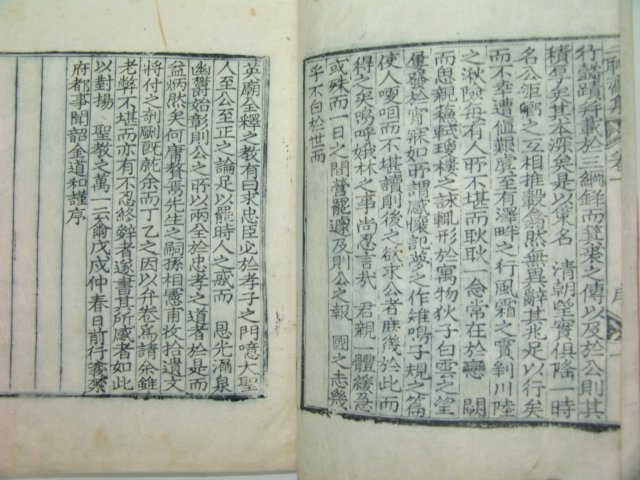 行誼蹟幷載於三綱錄而箕裘之傳以及於公則其
積厚矣其本深矣是以策名 淸朝望實俱隆一時
名公鉅卿之互相推載翕然無異辭其兆足以行矣
而不幸遭値艱虞至有澤畔之行風霜之實到川陸
之湫險每有人所不堪而耿耿一念常在於戀 闕
而思親猿軾瓊樓之詠軏形於寓物狄子白雲之望
屢發於宵寐如所謂感懷記夢之作雉鳴子規之篇
使人哽咽而不堪讀則後之欲求公者庶幾於此而
得之矣嗚呼娥林之事尙忍言哉 君親一體緩急
或殊而一日之間嘗罷遽及則公之報 國之志幾
乎不白於世而
英廟全釋之敎有曰求忠臣必於孝子之門噫大聖
人至公至正之論足以罷時人之惑而 恩光漏泉
幽鬱始彰則公之所以兩全於忠孝之道者於是而
益炳然矣何庸贅焉先生之嗣孫相憲甫收拾遺文
將付之剞劂旣訖余而丁乙之因以弁卷爲請余雖
老弊不堪而亦有不忍終辭者遂書其所感者如此
以對揚 聖敎之萬一云爾戊戌仲春日前行義禁
府都事聞韶金道和謹序